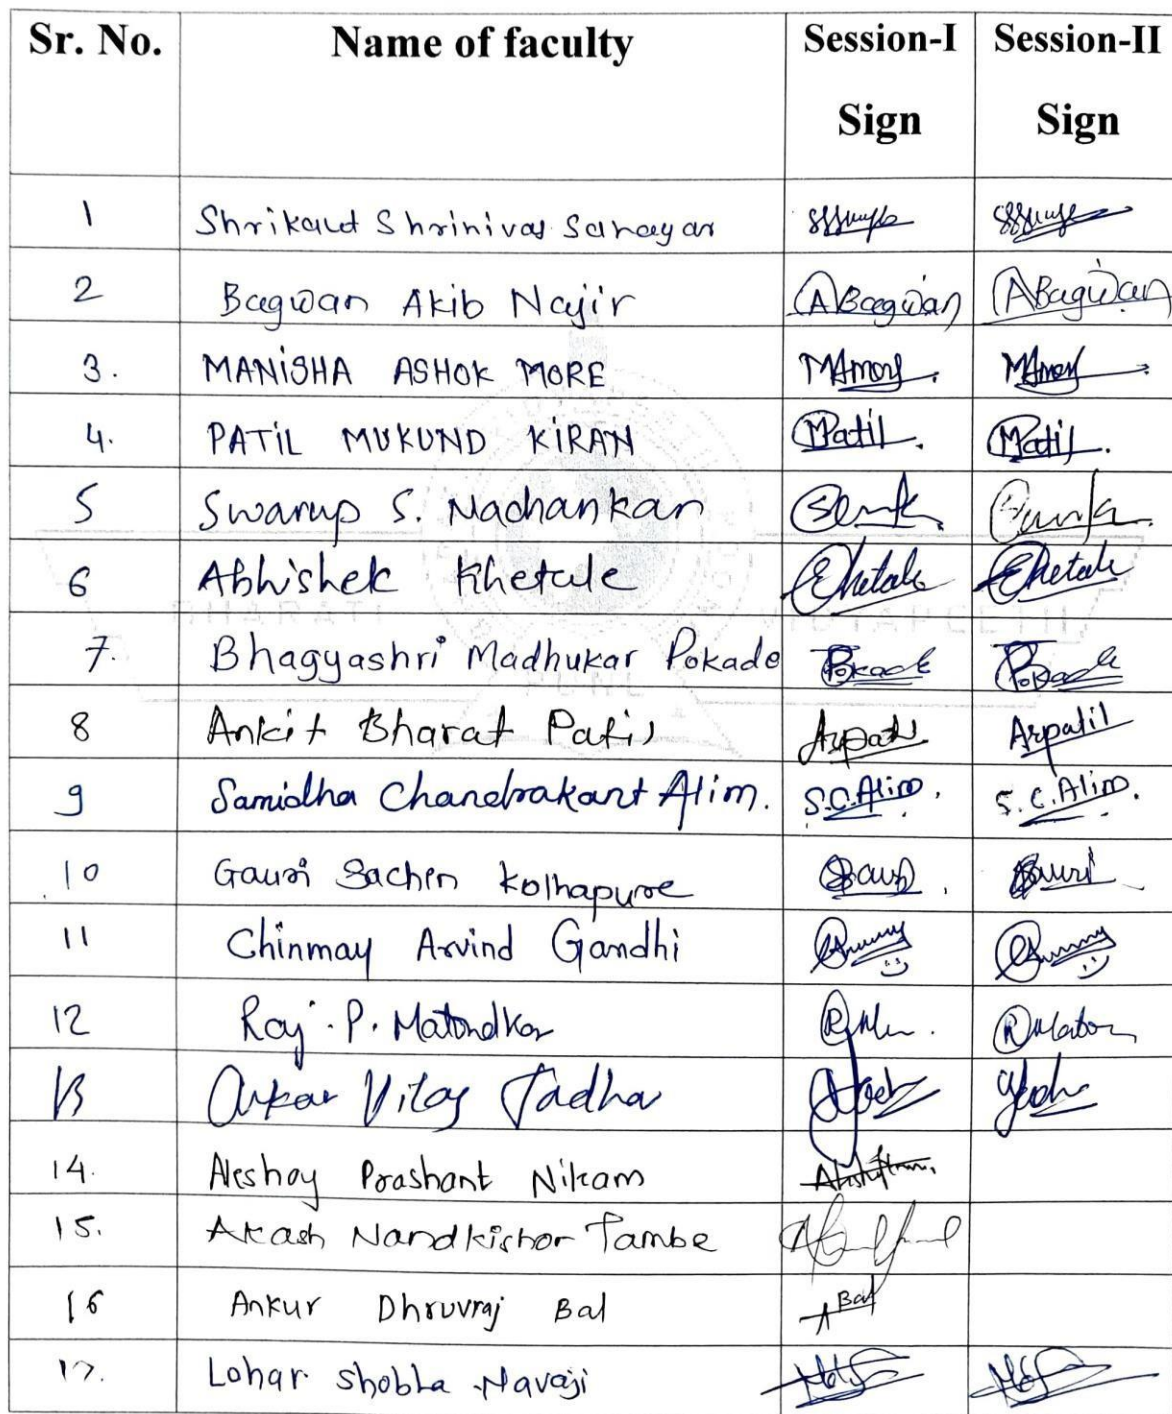 Sr. No. Name of faculty Session-I Session-II
Sign Sign
1 Shrikant Shrinivas
2 Bagwan Akib Najir ABagwan ABagwan
3. MANISHA ASHOK MORE MAmore. MAmore
4. PATIL MUKUND KIRAN MPatil. MPatil.
5 Swarup S. Nachankar
6 Abhishek Khetale Khetale Khetale
7. Bhagyashri Madhukar Pokade Pokade Pokade
8 Ankit Bharat Patil Arpatil Arpatil
9 Samidha Chandrakant Alim. S.C.Alim. S.C.Alim.
10 Gauri Sachin Kolhapure Gauri. Gauri
11 Chinmay Arvind Gandhi
12 Raj. P. Matondkar
13 Omkar Vilas Jadhav
14. Akshay Prashant Nikam
15. Akash Nandkishor Tambe
16 Ankur Dhruvraj Bal ABal
17. Lohar Shobha Navaji
BHARATI VIDYAPEETH
PUNE